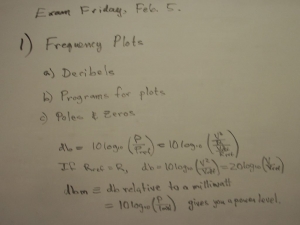 Exam Friday, Feb 5.
1) Frequency Plots
a) Decibels
b) Programs for plots
c) Poles & Zeros
db = 10 log₁₀ (P/Pref) = 10 log₁₀ (V²/R / V²ref/Rref)
If Rref = R, db = 10 log₁₀ (V²/V²ref) = 20 log₁₀ (V/Vref)
dbm ≡ db relative to a milliwatt
= 10 log₁₀ (P/1mW) gives you a power level.